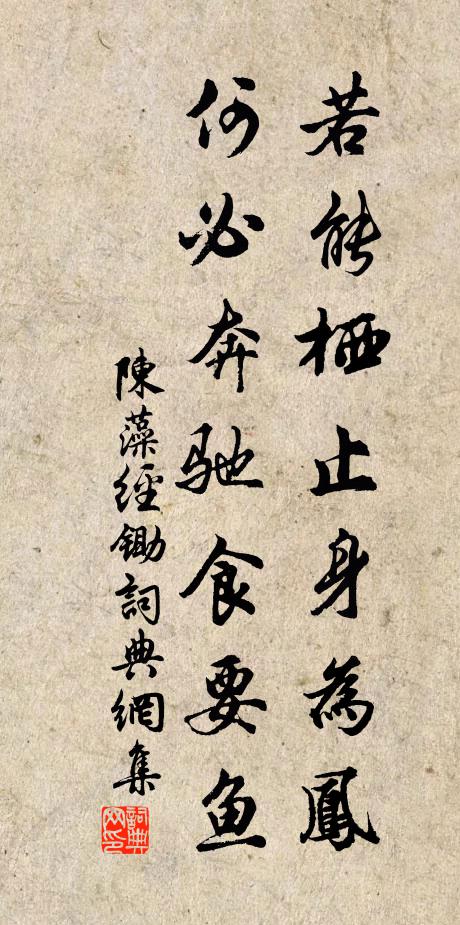 若能栖止身為鳳
何必奔驰食要鱼
陳藻經鋤詞典網集
詞典
网印